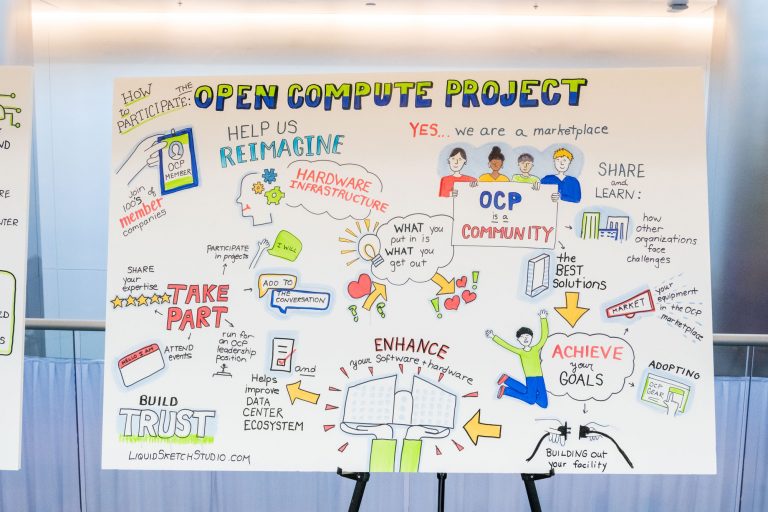 HOW to PARTICIPATE:
THE
OPEN COMPUTE PROJECT
OCP
MEMBER
JOIN
100's of
member
companies
HELP US
REIMAGINE
HARDWARE
INFRASTRUCTURE
YES... we are a marketplace
OCP
is a
COMMUNITY
SHARE
and
LEARN:
how
other
organizations
face
challenges
WHAT you
put in is
WHAT you
get out
the
BEST
solutions
PARTICIPATE
in projects
I WILL
SHARE
your
expertise
TAKE
PART
ADD TO
THE
CONVERSATION
ATTEND
events
HELLO I AM
run for
an OCP
leadership
position
and
Helps
improve
DATA
CENTER
ECOSYSTEM
BUILD
TRUST
LIQUIDSKETCHSTUDIO.COM
ENHANCE
your Software + hardware
MARKET
your
equipment
in the OCP
marketplace
ACHIEVE
your
GOALS
ADOPTING
OCP
GEAR
BUILDING out
your facility
ND
RE
NTER
LD